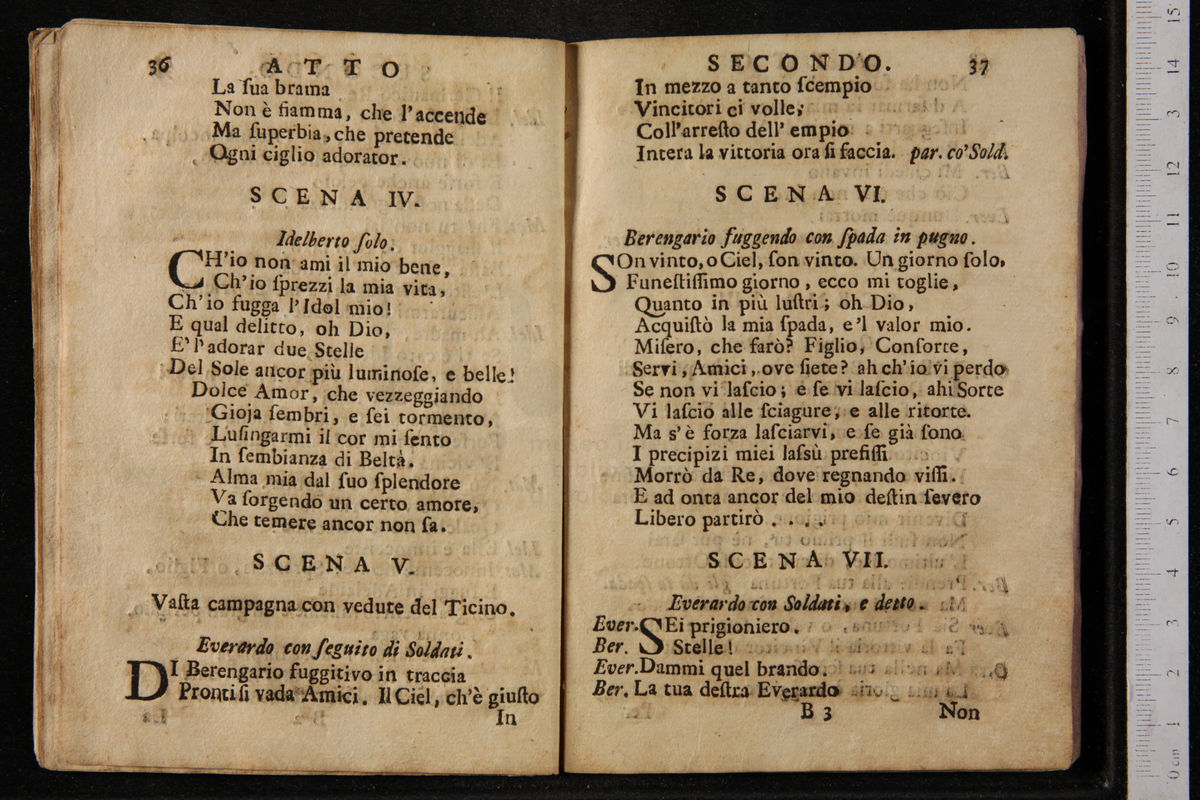 36 ATTO
La ſua brama
Non è fiamma, che l'accende
Ma ſuperbia, che pretende
Ogni ciglio adorator.
SCENA IV.
Idelberto ſolo.
CH'io non ami il mio bene,
Ch'io ſprezzi la mia vita,
Ch'io fugga l'Idol mio!
E qual delitto, oh Dio,
E' l'adorar due Stelle
Del Sole ancor più luminoſe, e belle!
Dolce Amor, che vezzeggiando
Gioja ſembri, e ſei tormento,
Luſingarmi il cor mi ſento
In ſembianza di Beltà.
Alma mia dal ſuo ſplendore
Va ſorgendo un certo amore,
Che temere ancor non ſa.
SCENA V.
Vaſta campagna con vedute del Ticino.
Everardo con ſeguito di Soldati.
DI Berengario fuggitivo in traccia
Pronti ſi vada Amici. Il Ciel, ch'è giuſto
In
SECONDO. 37
In mezzo a tanto ſcempio
Vincitori ci volle;
Coll'arreſto dell' empio
Intera la vittoria ora ſi faccia. par. co' Sold.
SCENA VI.
Berengario fuggendo con ſpada in pugno.
SOn vinto, o Ciel, ſon vinto. Un giorno ſolo,
Funeſtiſſimo giorno, ecco mi toglie,
Quanto in più luſtri; oh Dio,
Acquiſtò la mia ſpada, e'l valor mio.
Miſero, che farò? Figlio, Conſorte,
Servi, Amici, ove ſiete? ah ch'io vi perdo
Se non vi laſcio; e ſe vi laſcio, ahi Sorte
Vi laſcio alle ſciagure, e alle ritorte.
Ma s'è forza laſciarvi, e ſe già ſono
I precipizi miei laſsù prefiſſi
Morrò da Re, dove regnando viſſi.
E ad onta ancor del mio deſtin ſevero
Libero partirò . . . .
SCENA VII.
Everardo con Soldati, e detto.
Ever. SEi prigioniero.
Ber. Stelle!
Ever. Dammi quel brando.
Ber. La tua deſtra Everardo
B 3 Non
0 cm 1 2 3 4 5 6 7 8 9 10 11 12 13 14 15